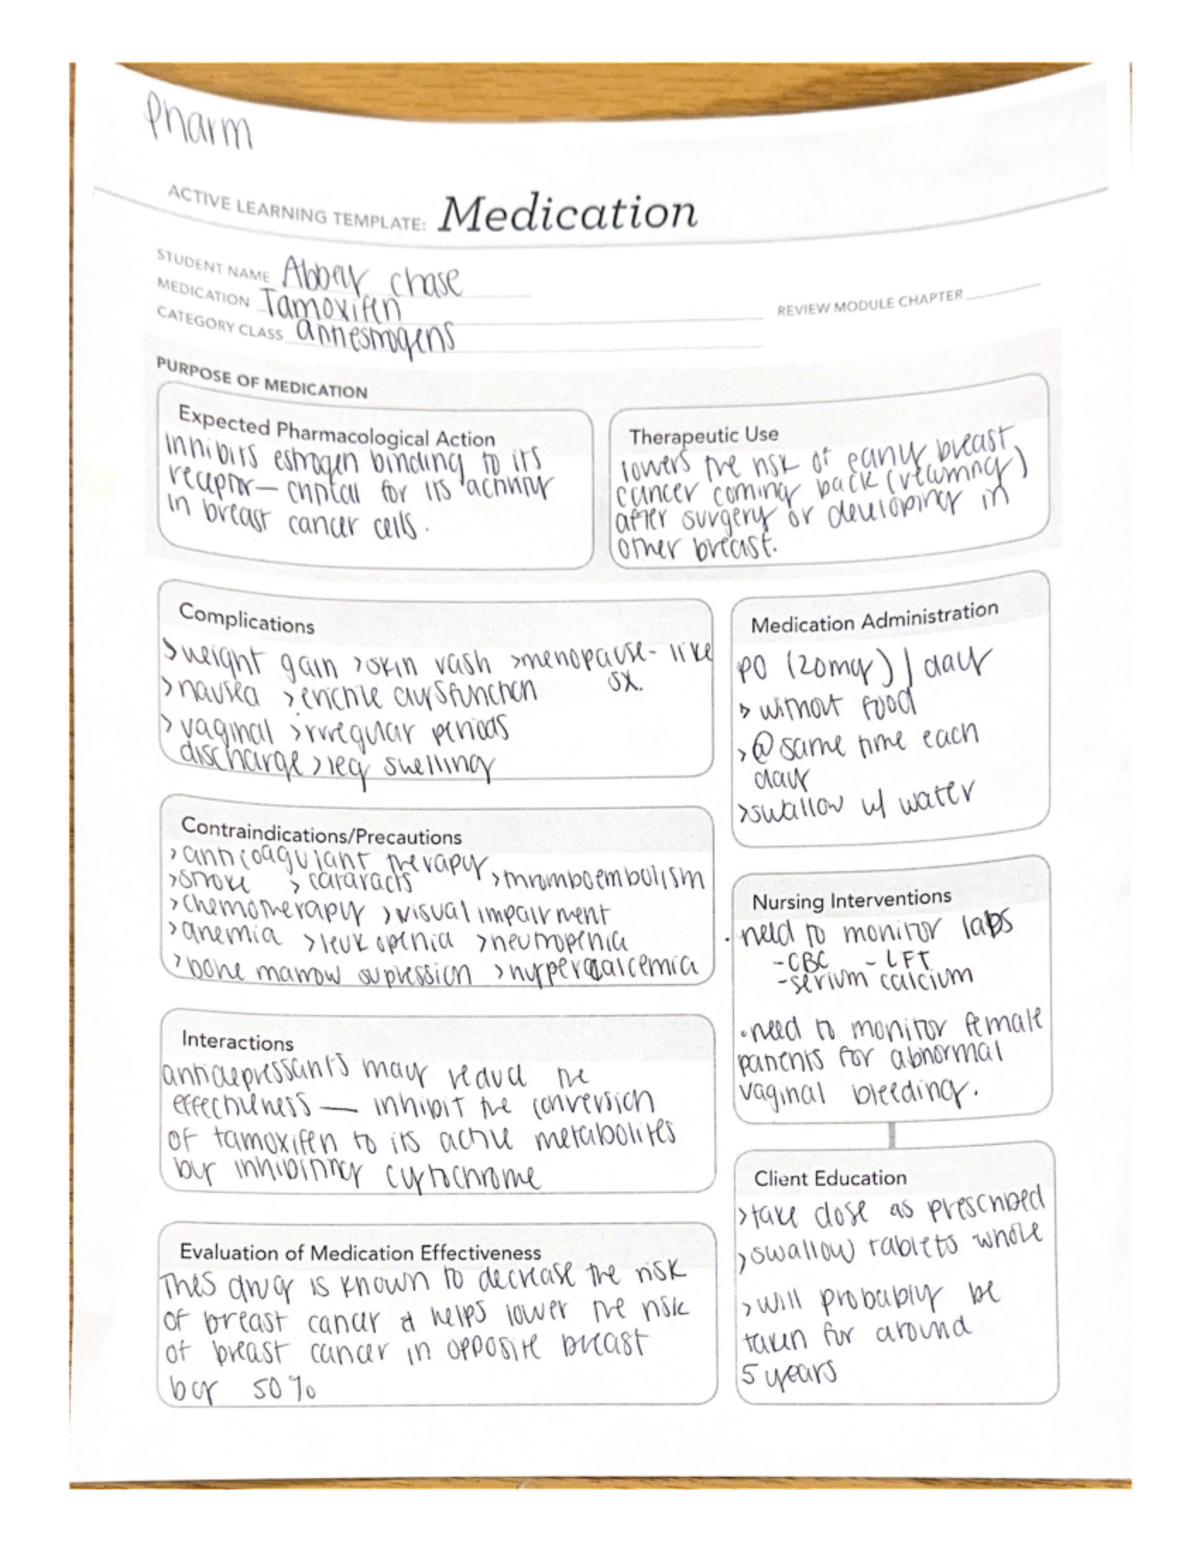 Pharm
ACTIVE LEARNING TEMPLATE: Medication
STUDENT NAME Abbey Chase
MEDICATION Tamoxifen
REVIEW MODULE CHAPTER
CATEGORY CLASS antiestrogens
PURPOSE OF MEDICATION
Expected Pharmacological Action
inhibits estrogen binding to its
receptor— critical for its activity
in breast cancer cells.
Therapeutic Use
lowers the risk of early breast
cancer coming back (returning)
after surgery or developing in
other breast.
Complications
>weight gain >skin rash >menopause-like
sx.
>nausea >erectile dysfunction
>vaginal >irregular periods
discharge >leg swelling
Medication Administration
PO (20mg) / day
> without food
>@ same time each
day
>swallow w/ water
Contraindications/Precautions
>anticoagulant therapy
>stroke >cataracts >thromboembolism
>chemotherapy >visual impairment
>anemia >leukopenia >neutropenia
>bone marrow supression >hypercalcemia
Nursing Interventions
• need to monitor labs
-CBC -LFT
-serium calcium
•need to monitor female
patients for abnormal
vaginal bleeding.
Interactions
antidepressants may reduce the
effectiveness — inhibit the conversion
of tamoxifen to its active metabolites
by inhibiting cytochrome
Client Education
>take dose as prescribed
>swallow tablets whole
>will probably be
taken for around
5 years
Evaluation of Medication Effectiveness
This drug is known to decrease the risk
of breast cancer & helps lower the risk
of breast cancer in opposite breast
by 50%